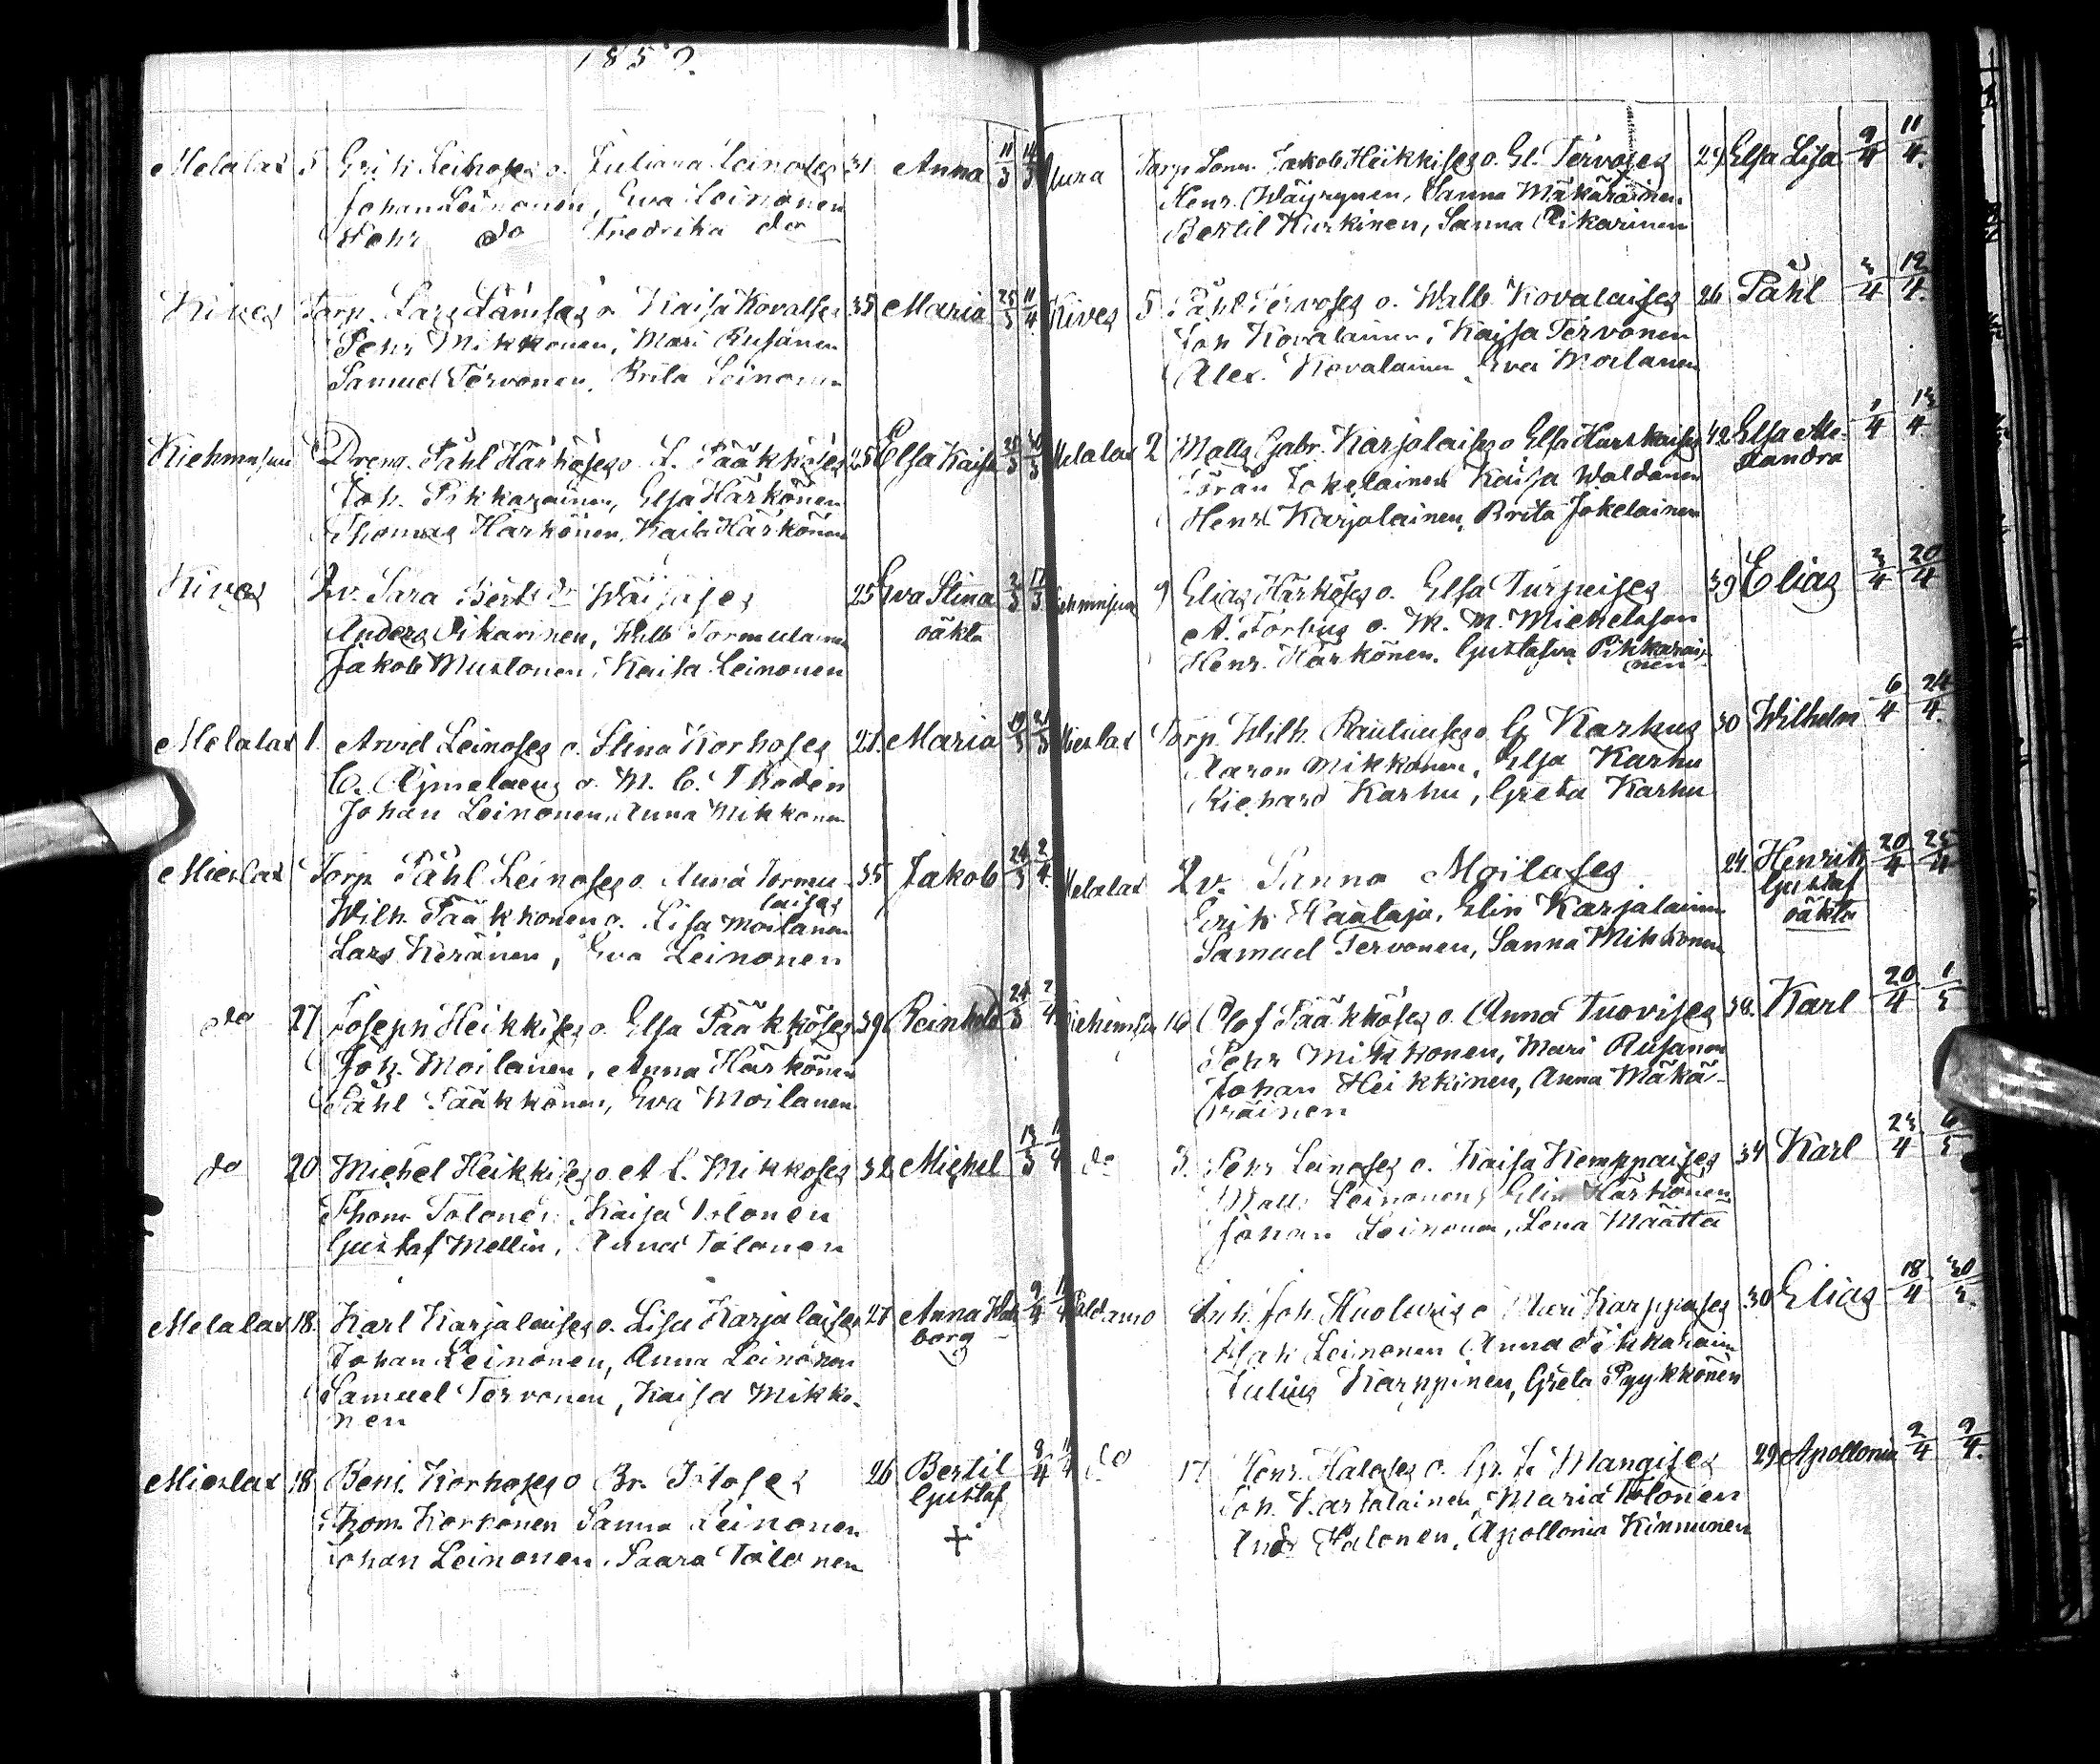 185
Melalax 5 Erik Leinoses o. Juliana Leinoses 31 Anna 11/3 14/3
Johan Leinonen, Eva Leinonen
Pehr do Fredrika do
Kives Torp. Lars Lämsäs o. Kaisa Kovalses 35 Maria 25/3 11/4
Pehr Mikkonen, Mari Rusanen
Samuel Tervonen, Brita Leinonen
Kiehmnsuu Dreng. Påhl Härköses o. L. Pääkköses 25 Elsa Kaisa
Joh. Pikkarainen, Elsa Härkönen
Thomas Härkönen, Kaisa Härkönen
Kives Qv. Sara Bert dr 25 Eva Stina 2/3 17/3
Anders Pikarinen, Walb Tormulainen oäkta
Jakob Mustonen, Kaisa Leinonen
Melalax 1. Arvid Leinoses o. Stina Korhoses 27. Maria 19/3 21/3
C. Ajmelaeus o. M. C. Thodén
Johan Leinonen, Anna Mikkonen
Mieslax Torp. Påhl Leinoses o. Anna Tormu- 35 Jakob 24/3 2/4
laises
Wilh. Pääkkönen o. Lisa Moilanen
Lars Keränen, Eva Leinonen
do 27 Joseph Heikkises o. Elsa Pääkköses 39 Reinhold 24/3 2/4
Joh. Moilanen, Anna Härkönen
Påhl Pääkkönen, Eva Moilanen
do 20 Michel Heikkises o. A L. Mikkoses 32 Michel
Thom Tolonen, Kaisa Tolonen
Gustaf Mellin, Anna Tolonen
Melalax 18. Karl Karjalaises o. Lisa Karjalaises 27 Anna Wal-
borg
Johan Leinonen, Anna Leinonen
Samuel Tervonen, Kaisa Mikko-
nen
Mieslax 18 Benj. Korhoses o Br. Toloses 26 Bertil 8/4 11/4
Gustaf
Thom. Korhonen Sanna Leinonen +
Johan Leinonen, Saara Tolonen
Jura Torp Sonn. Jakob Heikkises o. El. Tervoses 29 Elsa Lisa 9/4 11/4.
Henr. Wäyrynen, Sanna Mäkäräinen
Bertil Kurkinen, Sanna Pikarinen
Kives 5 Påhl Tervoses o. Walb. Kovalaises 26 Påhl 3/4 12/4.
Joh Kovalainen, Kaisa Tervonen
Alex. Kovalainen, Eva Moilanen
Melalax 2 Matts Gabr. Karjalaises o Elsa Hurskaises 42 Elsa Ale- 1/4 13/4
xandra
Göran Jokelainen Kaisa Waldanen
Henr Karjalainen, Brita Jokelainen
Kiehmnsuu 9 Elias Härköses o. Elsa Turpeises 39 Elias 3/4 20/4
A. Forbus o. M. M. Michelsson
Henr. Härkönen, Gustafva Pikkarai-
nen
Mieslax Torp. Wilh. Rautiuses o. G. Karhus 30 Wilhelm 6/4 24/4.
Aaron Mikkonen, Elsa Karhu
Richard Karhu, Greta Karhu
Melalax Qv. Sanna Moilases 24 Henrik 20/4 25/4
Gustaf
Erik Haataja, Elin Karjalainen oäkta
Samuel Tervonen, Sanna Mikkonen
Kiehimsuu 16 Olof Pääkköses o. Anna Tuovises 38. Karl 20/4 1/5
Pehr Mikkonen, Mari Rusanen
Johan Heikkinen, Anna Mäkä-
räinen
do 3. Pehr Leinoses o. Kaisa Kemppaises 34 Karl 23/4 6/5
Matts Leinonen, Elin Härkönen
Johan Leinonen, Lena Määttä
Paldamo Inh. Joh. Huoluris o Mari Karppises 30 Elias 18/4 30/5.
Isak Leinonen Anna Pikkarain
Julius Karppinen, Greta Pyykkönen
do 17 Henr. Haloses o. Gr. L. Mangises 29 Apollonia 2/4 9/4.
Joh. Karjalainen, Maria Tolonen
And Halonen, Apollonia Kinnunen